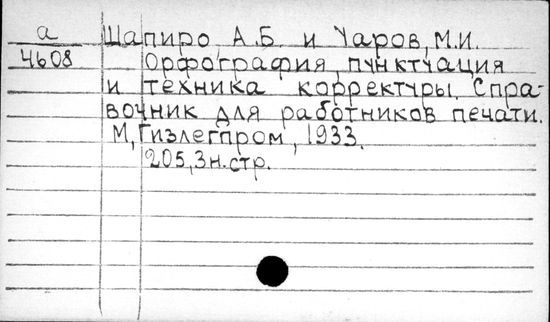 а
4608
Шапиро, А.Б. и Уаров, М.И.
Орфография, пунктуация
и техника корректуры. Спра-
вочник для работников печати.
М., Гизлегпром, 1933.
205, 3н.стр.